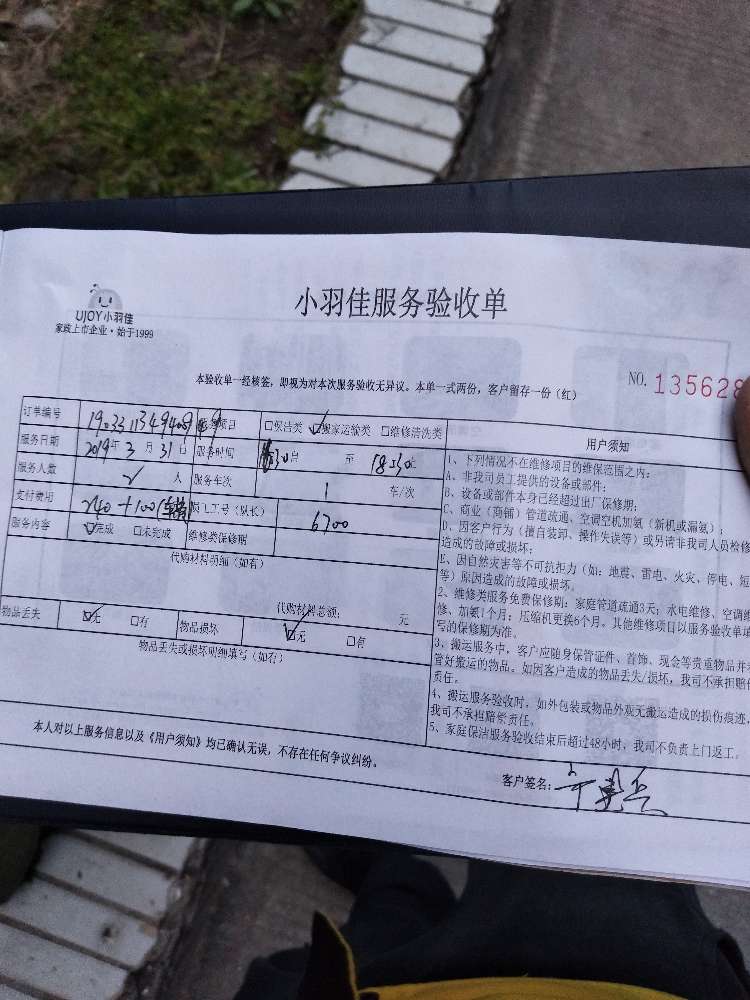 UJOY小羽佳
家政上市企业·始于1999
小羽佳服务验收单
本验收单一经核签，即视为对本次服务验收无异议。本单一式两份，客户留存一份（红）
NO. 135628
订单编号
服务项目 □保洁类 ☑搬家运输类 □维修清洗类
服务日期 2019年 3 月 31 日 服务时间 至 18:30
服务人数 人 服务车次 1 车/次
支付费用 240+100 员工工号（队长） 6700
服务内容 ☑完成 □未完成 维修类保修期
代购材料明细（如有）
代购材料总额： 元
物品丢失 ☑无 □有 物品损坏 ☑无 □有
物品丢失或损坏明细填写（如有）
用户须知
1、下列情况不在维修项目的维保范围之内：
A、非我司员工提供的设备或部件；
B、设备或部件本身已经超过出厂保修期；
C、商业（商铺）管道疏通、空调空机加氨（新机或漏氨）；
D、因客户行为（擅自装卸、操作失误等）或另请非我司人员检修
造成的故障或损坏；
E、因自然灾害等不可抗力（如：地震、雷电、火灾、停电、短
等）原因造成的故障或损坏。
2、维修类服务免费保修期：家庭管道疏通3天；水电维修、空调维
修、加氨1个月；压缩机更换6个月。其他维修项目以服务验收单填
写的保修期为准。
3、搬运服务中，客户应随身保管证件、首饰、现金等贵重物品并看
管好搬运的物品。如因客户造成的物品丢失/损坏，我司不承担赔偿
责任。
4、搬运服务验收时，如外包装或物品外观无搬运造成的损伤痕迹，
我司不承担赔偿责任。
5、家庭保洁服务验收结束后超过48小时，我司不负责上门返工。
本人对以上服务信息以及《用户须知》均已确认无误，不存在任何争议纠纷。
客户签名：